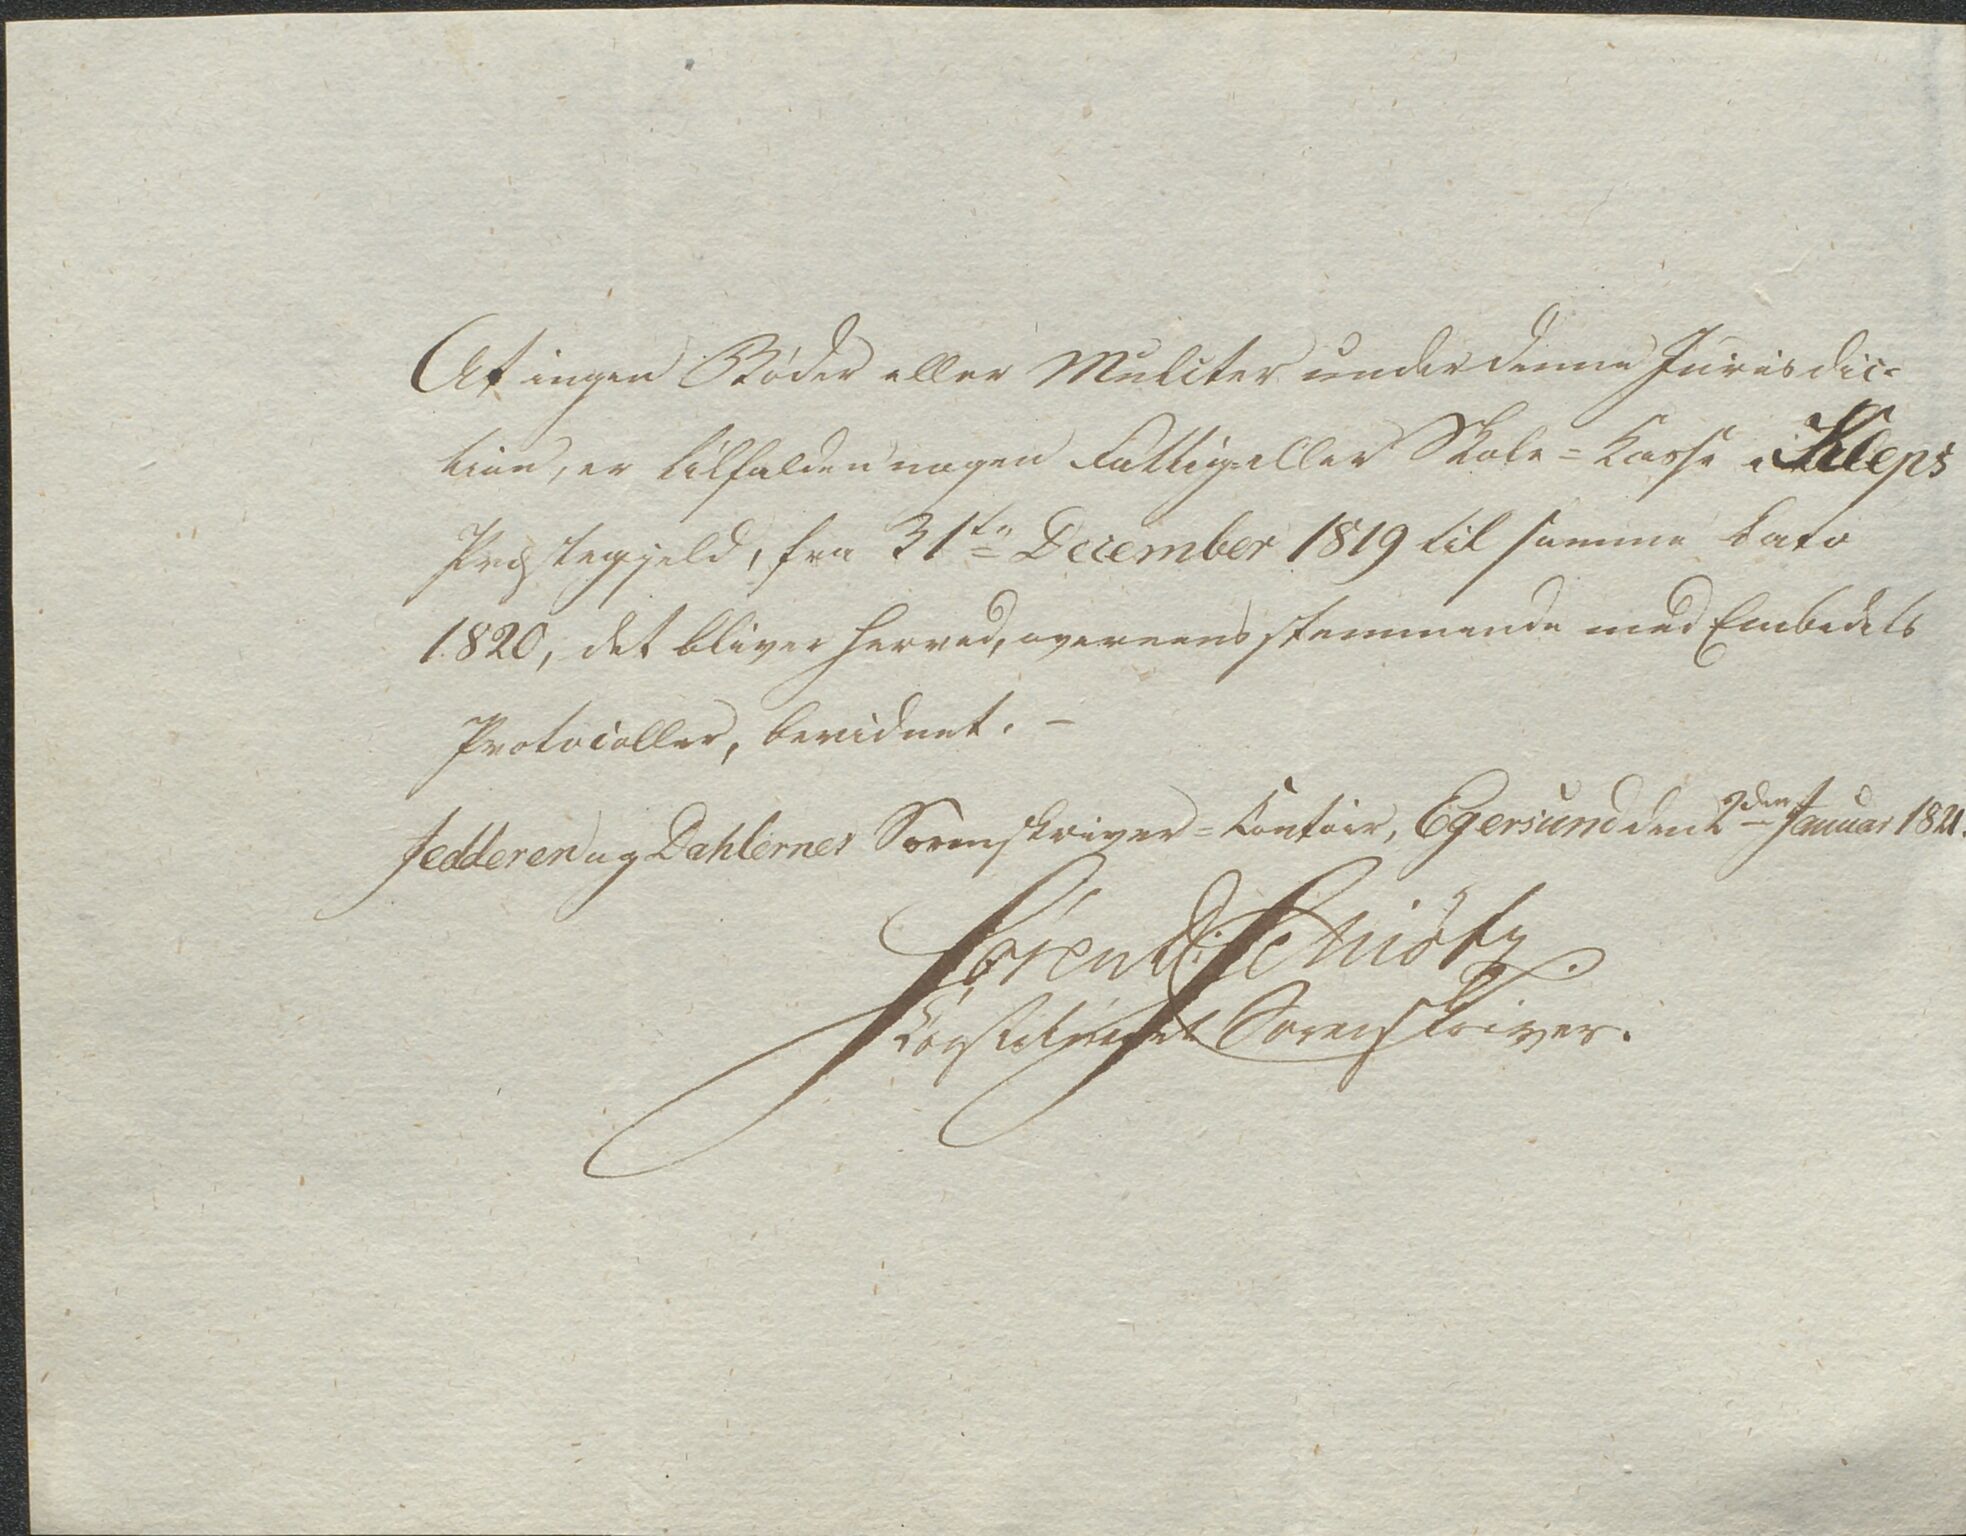 At ingen Bøder eller Mulcter under denne Jurisdic-
tion, er tilfalden nogen Fattig- eller Skole-Casse i Kleps
Præstegjeld, fra 31te December 1819 til samme Dato
1820, det bliver herved, overeensstemmende med Embedets
Protocoller, bevidnet. —
Jedderen og Dahlernes Sorenskriver-Contoir, Egersund den 2den Januar 1821.
Søren D: Schiötz.
Constitueret Sorenskriver.